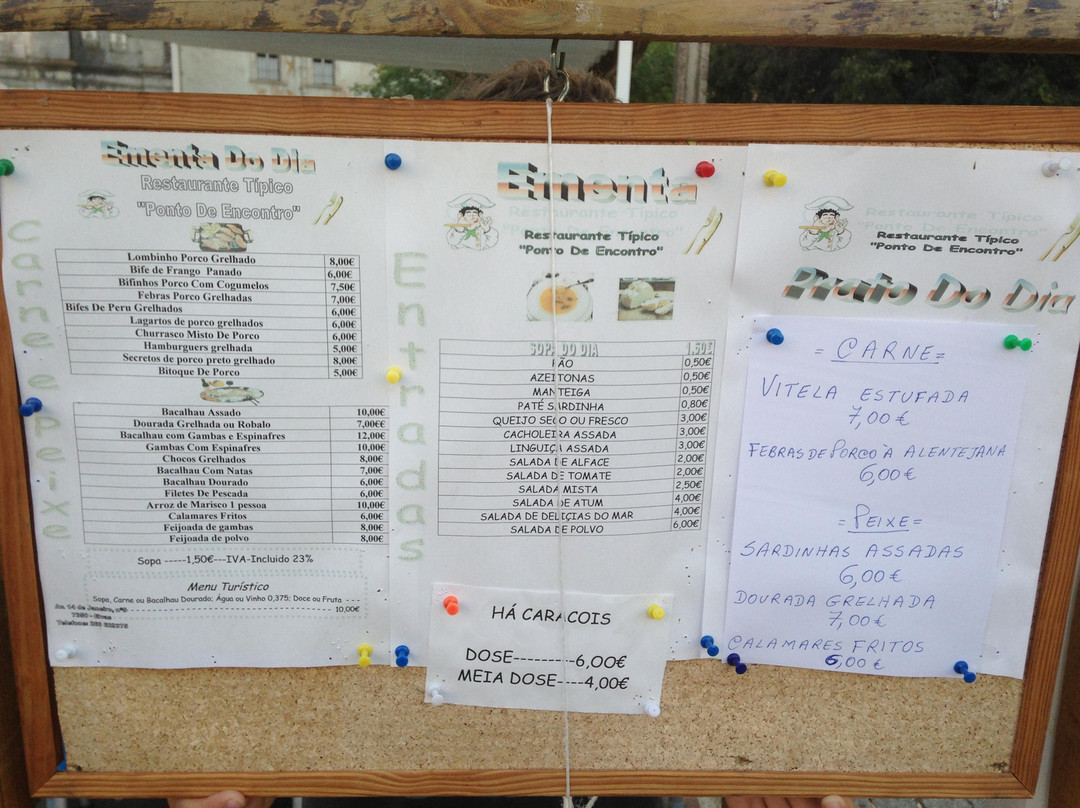 Ementa Do Dia
Restaurante Típico
"Ponto De Encontro"
Carne e peixe
Lombinho Porco Grelhado 8,00€
Bife de Frango Panado 6,00€
Bifinhos Porco Com Cogumelos 7,50€
Febras Porco Grelhadas 7,00€
Bifes De Peru Grelhados 6,00€
Lagartos de porco grelhados 6,00€
Churrasco Misto De Porco 6,00€
Hamburguers grelhada 5,00€
Secretos de porco preto grelhado 8,00€
Bitoque De Porco 5,00€
Bacalhau Assado 10,00€
Dourada Grelhada ou Robalo 7,00€€
Bacalhau com Gambas e Espinafres 12,00€
Gambas Com Espinafres 10,00€
Chocos Grelhados 8,00€
Bacalhau Com Natas 7,00€
Bacalhau Dourado 6,00€
Filetes De Pescada 6,00€
Arroz de Marisco 1 pessoa 10,00€
Calamares Fritos 6,00€
Feijoada de gambas 8,00€
Feijoada de polvo 8,00€
Sopa -----1,50€---IVA-Incluido 23%
Menu Turístico
Sopa, Carne ou Bacalhau Dourado; Água ou Vinho 0,375; Doce ou Fruta ---
10,00€
Av. 14 de Janeiro, nº
- Elvas
Telefone: 268
Ementa
Restaurante Típico
"Ponto De Encontro"
Entradas
SOPA DO DIA 1,50€
PÃO 0,50€
AZEITONAS 0,50€
MANTEIGA 0,50€
PATÉ SARDINHA 0,80€
QUEIJO SECO OU FRESCO 3,00€
CACHOLEIRA ASSADA 3,00€
LINGUIÇA ASSADA 3,00€
SALADA DE ALFACE 2,00€
SALADA DE TOMATE 2,00€
SALADA MISTA 2,50€
SALADA DE ATUM 4,00€
SALADA DE DELICIAS DO MAR 4,00€
SALADA DE POLVO 6,00€
HÁ CARACOIS
DOSE---------6,00€
MEIA DOSE----4,00€
Restaurante Típico
"Ponto De Encontro"
Prato Do Dia
= CARNE =
VITELA ESTUFADA
7,00€
FEBRAS DE PORCO À ALENTEJANA
6,00€
= PEIXE =
SARDINHAS ASSADAS
6,00€
DOURADA GRELHADA
7,00€
CALAMARES FRITOS
6,00€